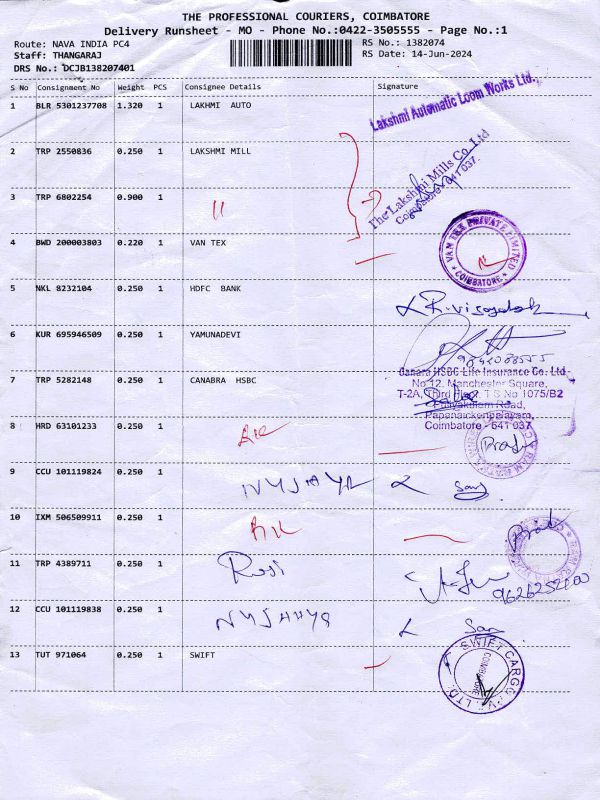 THE PROFESSIONAL COURIERS, COIMBATORE
Delivery Runsheet - MO - Phone No.:0422-3505555 - Page No.:1
Route: NAVA INDIA PC4 RS No.: 1382074
Staff: THANGARAJ RS Date: 14-Jun-2024
DRS No.: DCJB138207401
S No Consignment No Weight PCS Consignee Details Signature
1 BLR 5301237708 1.320 1 LAKHMI AUTO
Lakshmi Automatic Loom Works Ltd.,
2 TRP 2550836 0.250 1 LAKSHMI MILL
The Lakshmi Mills Co. Ltd
Coimbatore 641 037.
3 TRP 6802254 0.900 1 "
4 BWD 200003803 0.220 1 VAN TEX
VAN TEX PRIVATE LIMITED
* COIMBATORE *
5 NKL 8232104 0.250 1 HDFC BANK
6 KUR 695946509 0.250 1 YAMUNADEVI
7 TRP 5282148 0.250 1 CANABRA HSBC
Canara HSBC Life Insurance Co. Ltd.
No 12, Manchester Square,
T-2A, Third Floor, T S No 1075/B2
Puliyakulam Road,
Papanaickenpalayam,
Coimbatore - 641 037
8 HRD 63101233 0.250 1
9 CCU 101119824 0.250 1
10 IXM 506509911 0.250 1
11 TRP 4389711 0.250 1
12 CCU 101119838 0.250 1
13 TUT 971064 0.250 1 SWIFT
SWIFT CARGO PVT. LTD.
COIMBATORE